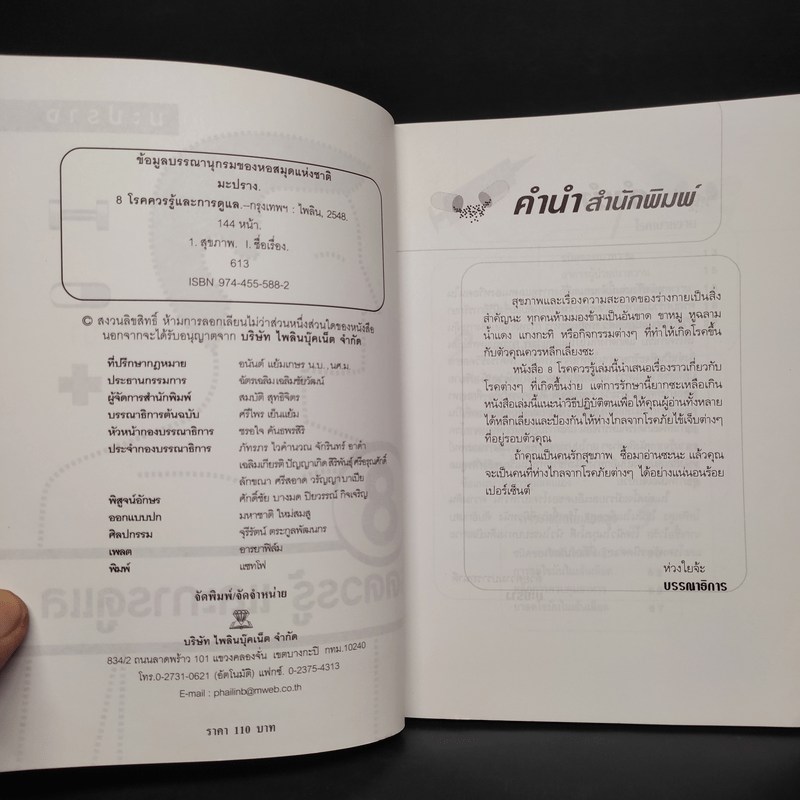 มะปราง
ข้อมูลบรรณานุกรมของหอสมุดแห่งชาติ
มะปราง.
8 โรคควรรู้และการดูแล.--กรุงเทพฯ : ไพลิน, 2548.
144 หน้า.
1. สุขภาพ. I. ชื่อเรื่อง.
613
ISBN 974-455-588-2
© สงวนลิขสิทธิ์ ห้ามการลอกเลียนไม่ว่าส่วนหนึ่งส่วนใดของหนังสือ
นอกจากจะได้รับอนุญาตจาก บริษัท ไพลินบุ๊คเน็ต จำกัด
ที่ปรึกษากฎหมาย อนันต์ แย้มเกษร น.บ., นศ.ม.
ประธานกรรมการ ฉัตรเฉลิม เฉลิมชัยวัฒน์
ผู้จัดการสำนักพิมพ์ สมบัติ สุทธิจิตร
บรรณาธิการต้นฉบับ ศรีไพร เย็นแย้ม
หัวหน้ากองบรรณาธิการ ชรอใจ คันธพรสิริ
ประจำกองบรรณาธิการ ภัทรภร ไวคำนวณ จักรินทร์ อาดำ
เฉลิมเกียรติ ปัญญาเกิด สิริพันธุ์ ศรีอรุณศักดิ์
ลักขณา ศรีสอาด วรัญญา บาเปีย
พิสูจน์อักษร ศักดิ์ชัย บางมด ปิยวรรณ์ กิจเจริญ
ออกแบบปก มหาชาติ ใหม่สมสู
ศิลปกรรม จุรีรัตน์ ตระกูลพัฒนกร
เพลต อารยาฟิล์ม
พิมพ์ แซทโฟ่
จัดพิมพ์/จัดจำหน่าย
บริษัท ไพลินบุ๊คเน็ต จำกัด
834/2 ถนนลาดพร้าว 101 แขวงคลองจั่น เขตบางกะปิ กทม.10240
โทร.0-2731-0621 (อัตโนมัติ) แฟกซ์. 0-2375-4313
E-mail : phailinb@mweb.co.th
ราคา 110 บาท
คำนำ สำนักพิมพ์
สุขภาพและเรื่องความสะอาดของร่างกายเป็นสิ่ง
สำคัญนะ ทุกคนห้ามมองข้ามเป็นอันขาด ขาหมู หูฉลาม
น้ำแดง แกงกะทิ หรือกิจกรรมต่างๆ ที่ทำให้เกิดโรคขึ้น
กับตัวคุณควรหลีกเลี่ยงซะ
หนังสือ 8 โรคควรรู้เล่มนี้นำเสนอเรื่องราวเกี่ยวกับ
โรคต่างๆ ที่เกิดขึ้นง่าย แต่การรักษานี้ยากซะเหลือเกิน
หนังสือเล่มนี้แนะนำวิธีปฏิบัติตนเพื่อให้คุณผู้อ่านทั้งหลาย
ได้หลีกเลี่ยงและป้องกันให้ห่างไกลจากโรคภัยไข้เจ็บต่างๆ
ที่อยู่รอบตัวคุณ
ถ้าคุณเป็นคนรักสุขภาพ ซื้อมาอ่านซะนะ แล้วคุณ
จะเป็นคนที่ห่างไกลจากโรคภัยต่างๆ ได้อย่างแน่นอนร้อย
เปอร์เซ็นต์
ห่วงใยจ้ะ
บรรณาธิการ